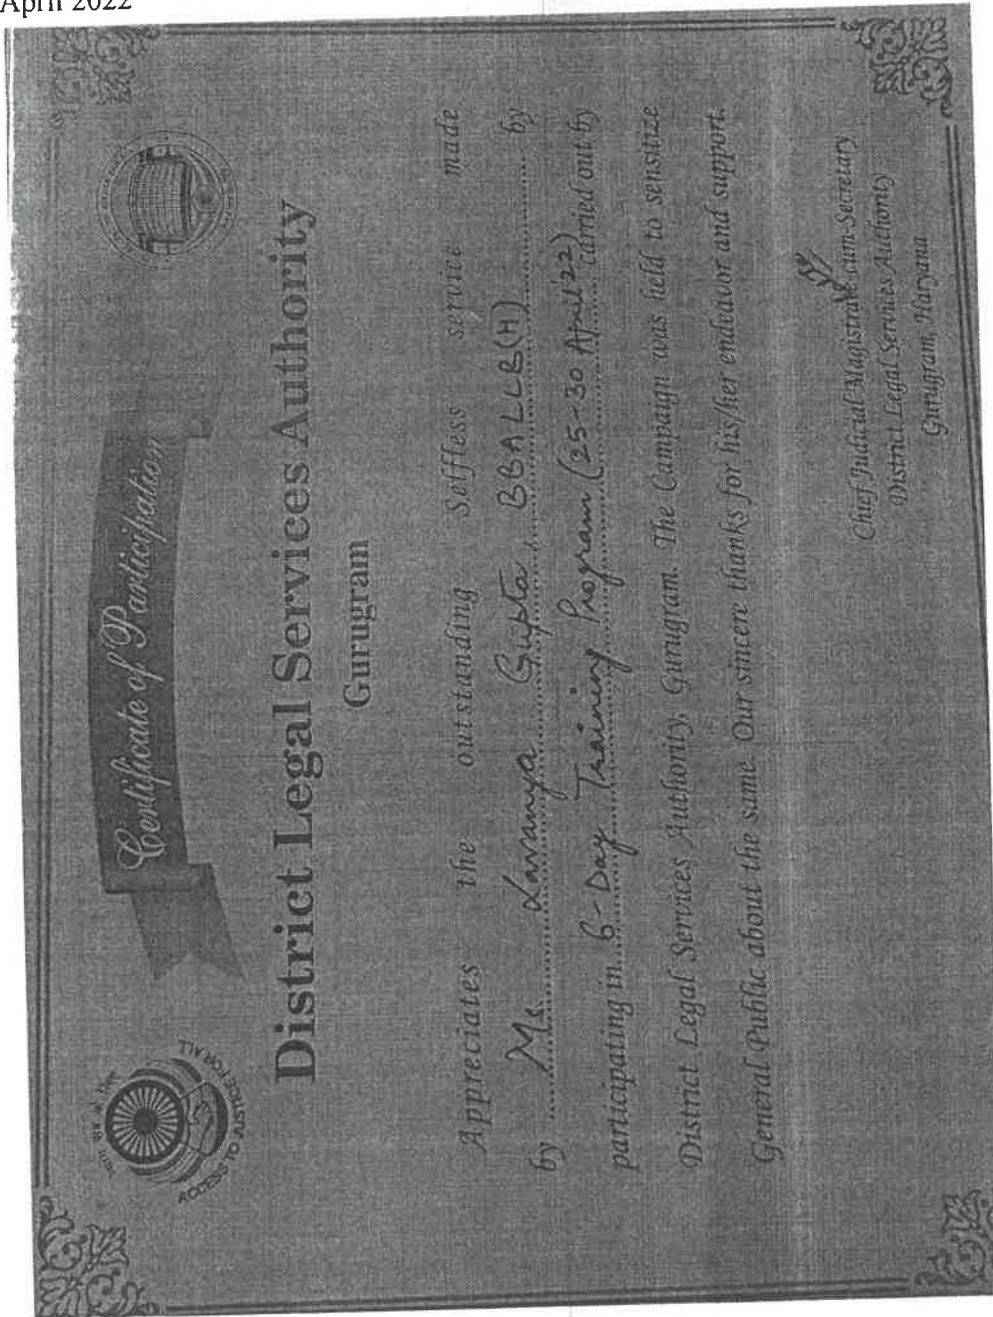 April 2022
Certificate of Participation
ACCESS TO JUSTICE FOR ALL
District Legal Services Authority
Gurugram
Appreciates the outstanding Selfless service made
by Ms. Lavanya Gupta, BBALLB(H) by
participating in 6-Day Training Program (25-30 April'22) carried out by
District Legal Services Authority, Gurugram. The Campaign was held to sensitize
General Public about the same. Our sincere thanks for his/her endeavor and support.
Chief Judicial Magistrate-cum-Secretary
District Legal Services Authority
Gurugram, Haryana